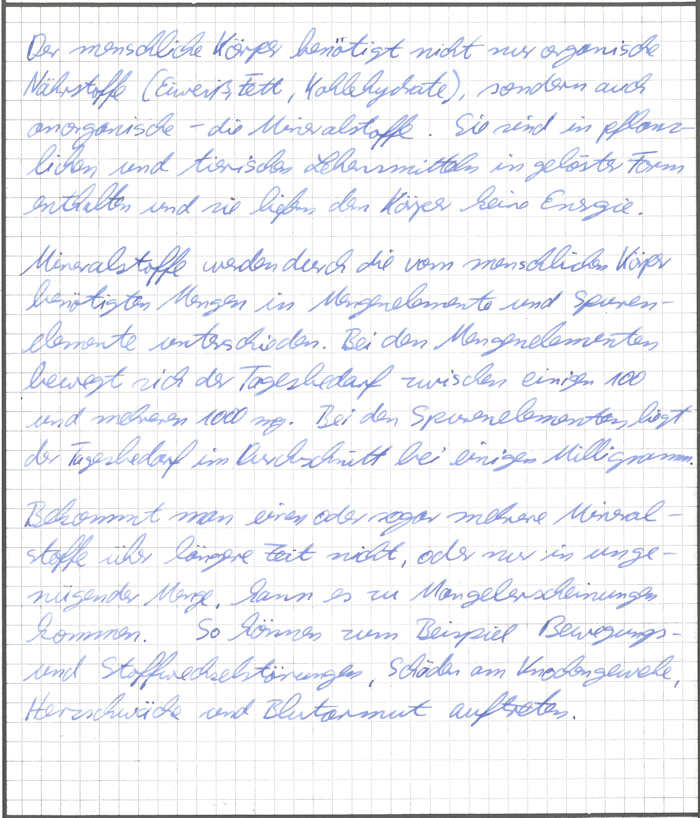 Der menschliche Körper benötigt nicht nur organische
Nährstoffe (Eiweiß, Fett, Kohlehydrate), sondern auch
anorganische - die Mineralstoffe. Sie sind in pflanz-
lichen und tierischen Lebensmitteln in gelöster Form
enthalten und sie liefern dem Körper keine Energie.
Mineralstoffe werden durch die vom menschlichen Körper
benötigten Mengen in Mengenelemente und Spuren-
elemente unterschieden. Bei den Mengenelementen
bewegt sich der Tagesbedarf zwischen einigen 100
und mehreren 1000 mg. Bei den Spurenelementen liegt
der Tagesbedarf im Durchschnitt bei einigen Milligramm.
Bekommt man einen oder sogar mehrere Mineral-
stoffe über längere Zeit nicht, oder nur in unge-
nügender Menge, kann es zu Mangelerscheinungen
kommen. So können zum Beispiel Bewegungs-
und Stoffwechselstörungen, Schäden am Knochengewebe,
Herzschwäche und Blutarmut auftreten.